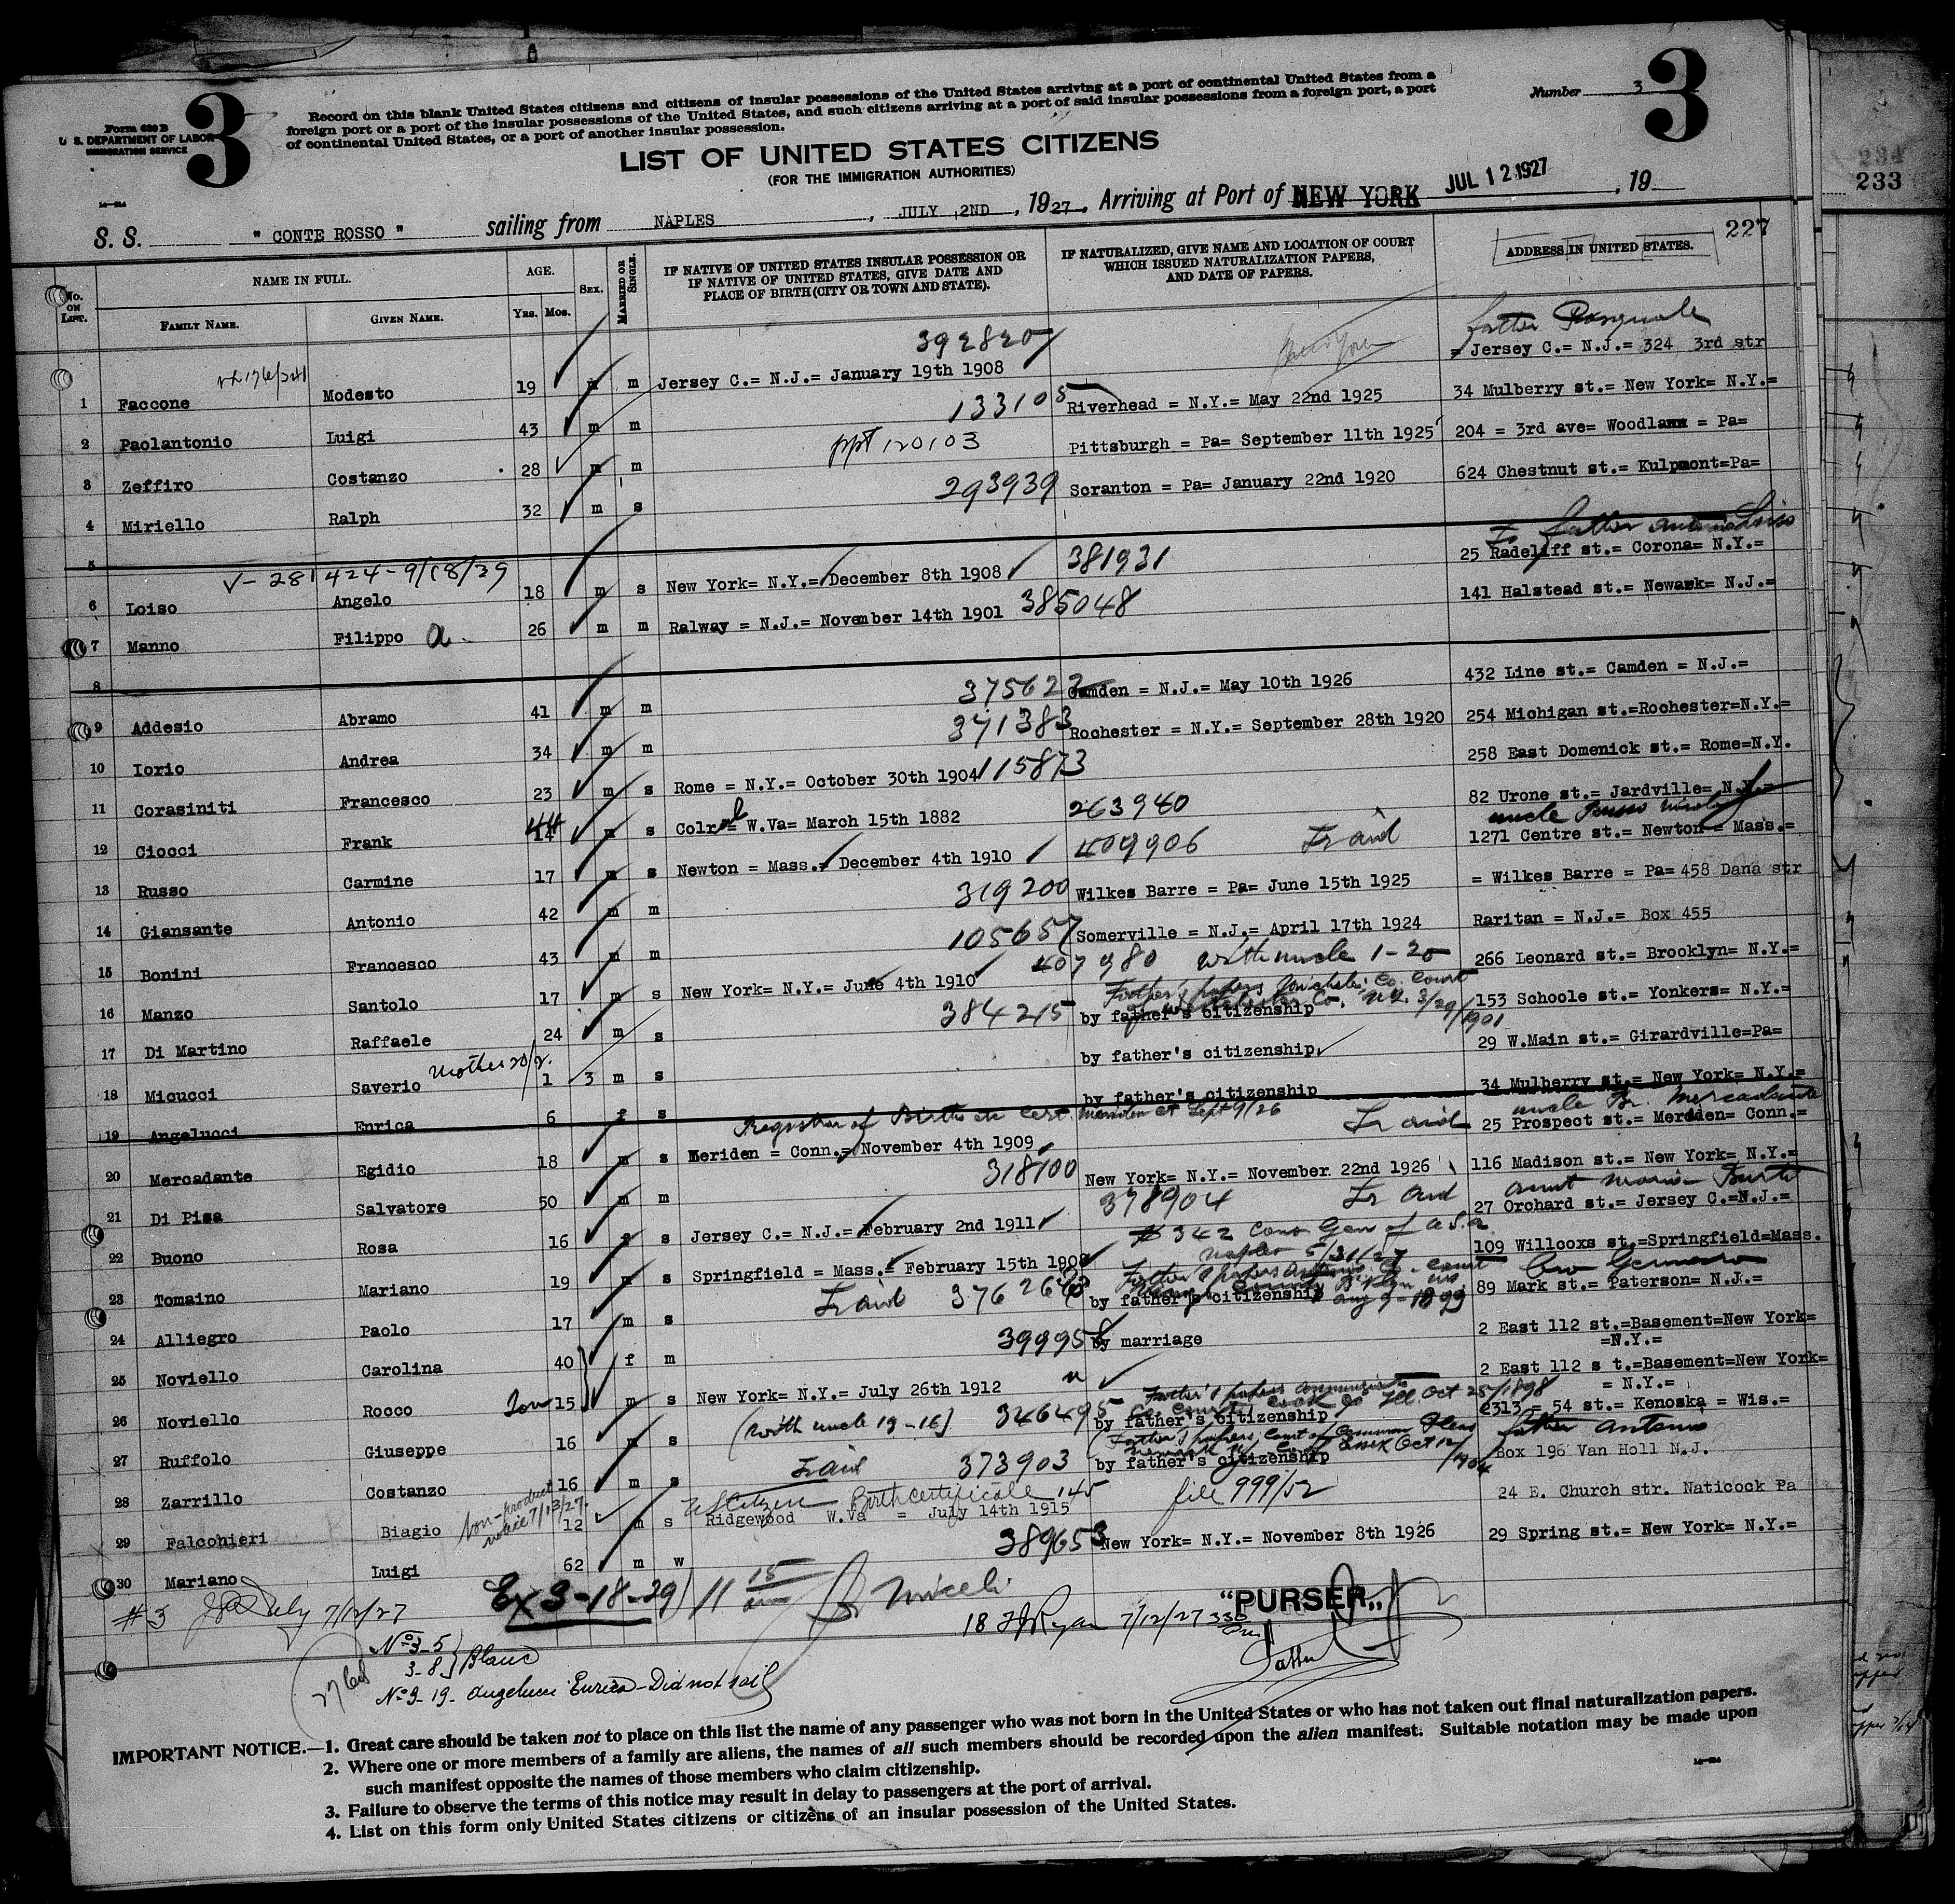 3
Form 630 B
U. S. DEPARTMENT OF LABOR
IMMIGRATION SERVICE
Record on this blank United States citizens and citizens of insular possessions of the United States arriving at a port of continental United States from a
foreign port or a port of the insular possessions of the United States, and such citizens arriving at a port of said insular possessions from a foreign port, a port
of continental United States, or a port of another insular possession.
Number 3
3
LIST OF UNITED STATES CITIZENS
(FOR THE IMMIGRATION AUTHORITIES)
234
233
S. S. " CONTE ROSSO " sailing from NAPLES, JULY 2ND, 1927, Arriving at Port of NEW YORK JUL 12 1927, 19
227
No. ON LIST. NAME IN FULL. FAMILY NAME. GIVEN NAME. AGE. YRS. MOS. SEX. MARRIED OR SINGLE. IF NATIVE OF UNITED STATES INSULAR POSSESSION OR IF NATIVE OF UNITED STATES, GIVE DATE AND PLACE OF BIRTH (CITY OR TOWN AND STATE). IF NATURALIZED, GIVE NAME AND LOCATION OF COURT WHICH ISSUED NATURALIZATION PAPERS, AND DATE OF PAPERS. ADDRESS IN UNITED STATES.
392820 father Pasquale
1 Faccone Modesto 19 m m Jersey C.= N.J.= January 19th 1908 = Jersey C.= N.J.= 324 3rd str
2 Paolantonio Luigi 43 m m 133105 Riverhead = N.Y.= May 22nd 1925 34 Mulberry st.= New York= N.Y.=
3 Zeffiro Costanzo 28 m m ppt 120103 Pittsburgh = Pa= September 11th 1925 204 = 3rd ave= Woodlawn = Pa=
4 Miriello Ralph 32 m s 293939 Scranton = Pa= January 22nd 1920 624 Chestnut st.= Kulpmont=Pa=
5
V- 281424-9/18/29 father
6 Loiso Angelo 18 m s New York= N.Y.= December 8th 1908 381931 25 Radcliff st.= Corona= N.Y.=
7 Manno Filippo a. 26 m m Ralway = N.J.= November 14th 1901 385048 141 Halstead st.= Newark= N.J.=
8
9 Addesio Abramo 41 m m 375622 Camden = N.J.= May 10th 1926 432 Line st.= Camden = N.J.=
10 Iorio Andrea 34 m m 371383 Rochester = N.Y.= September 28th 1920 254 Michigan st.=Rochester=N.Y.=
11 Corasiniti Francesco 23 m s Rome = N.Y.= October 30th 1904 115873 258 East Domenick st.= Rome=N.Y.
12 Ciocci Frank 44 m s W.Va= March 15th 1882 263940 82 Urone st.= Jardville= N.Y.=
uncle
13 Russo Carmine 17 m s Newton = Mass.= December 4th 1910 409906 1271 Centre st.= Newton = Mass.=
14 Giansante Antonio 42 m m 319200 Wilkes Barre = Pa= June 15th 1925 = Wilkes Barre = Pa= 458 Dana str
15 Bonini Francesco 43 m m 105657 Somerville = N.J.= April 17th 1924 Raritan = N.J.= Box 455
16 Manzo Santolo 17 m s New York= N.Y.= June 4th 1910 407980 with uncle 1-20 266 Leonard st.= Brooklyn= N.Y.=
Father's papers Co. Court
of Westchester Co. N.Y. 3/29/1901
17 Di Martino Raffaele 24 m s 384215 by father's citizenship 153 Schoole st.= Yonkers= N.Y.=
18 Micucci Saverio 1 3 m s by father's citizenship 29 W.Main st.= Girardville=Pa=
19 Angelucci Enrica 6 f s by father's citizenship 34 Mulberry st.= New York= N.Y.=
Registrar of Birth cert. Meriden ct Sept 9/26 uncle Mercadante
20 Mercadante Egidio 18 m s Meriden = Conn.= November 4th 1909 25 Prospect st.= Meriden= Conn.=
21 Di Pisa Salvatore 50 m m 318100 New York= N.Y.= November 22nd 1926 116 Madison st.= New York= N.Y.=
aunt Maria
22 Buono Rosa 16 f s Jersey C.= N.J.= February 2nd 1911 378904 27 Orchard st.= Jersey C.=N.J.=
# 342 Cons Gen of U.S.A.
Naples 5/31/27
23 Tomaino Mariano 19 m s Springfield = Mass.= February 15th 1908 109 Willcoxs st.=Springfield=Mass.
Father's papers Aug 9-1899
24 Alliegro Paolo 17 m s by father's citizenship 89 Mark st.= Paterson= N.J.=
25 Noviello Carolina 40 f m 399958 by marriage 2 East 112 st.=Basement=New York=
=N.Y.=
26 Noviello Rocco Son 15 m s New York= N.Y.= July 26th 1912 2 East 112 s t.=Basement=New York=
= N.Y.=
Father's papers Court Cook Co Ill. Oct 25/1898
27 Ruffolo Giuseppe 16 m s (with uncle 19-16) 346495 by father's citizenship 2313 = 54 st.= Kenoska = Wis.=
Father's papers Court of Common Pleas Essex Oct 12/1904 father Antonio
28 Zarrillo Costanzo 16 m s 373903 by father's citizenship Box 196 Van Holl N.J.
US Citizen Birth certificate 145 file 999/52
29 Falcohieri Biagio 12 m s Ridgewood W.Va = July 14th 1915 24 E. Church str. Naticock Pa
30 Mariano Luigi 62 m w 389653 New York= N.Y.= November 8th 1926 29 Spring st.= New York= N.Y.=
Ex 3-18-29 11 15 Miceli
"PURSER„
# 3 7/12/27
18 Ryan 7/12/27 330 Pm
No 3-5
3-8 } Blanc
No 3-19- Angelucci Enrica-Did not sail
IMPORTANT NOTICE.—1. Great care should be taken not to place on this list the name of any passenger who was not born in the United States or who has not taken out final naturalization papers.
2. Where one or more members of a family are aliens, the names of all such members should be recorded upon the alien manifest. Suitable notation may be made upon
such manifest opposite the names of those members who claim citizenship.
3. Failure to observe the terms of this notice may result in delay to passengers at the port of arrival.
4. List on this form only United States citizens or citizens of an insular possession of the United States.